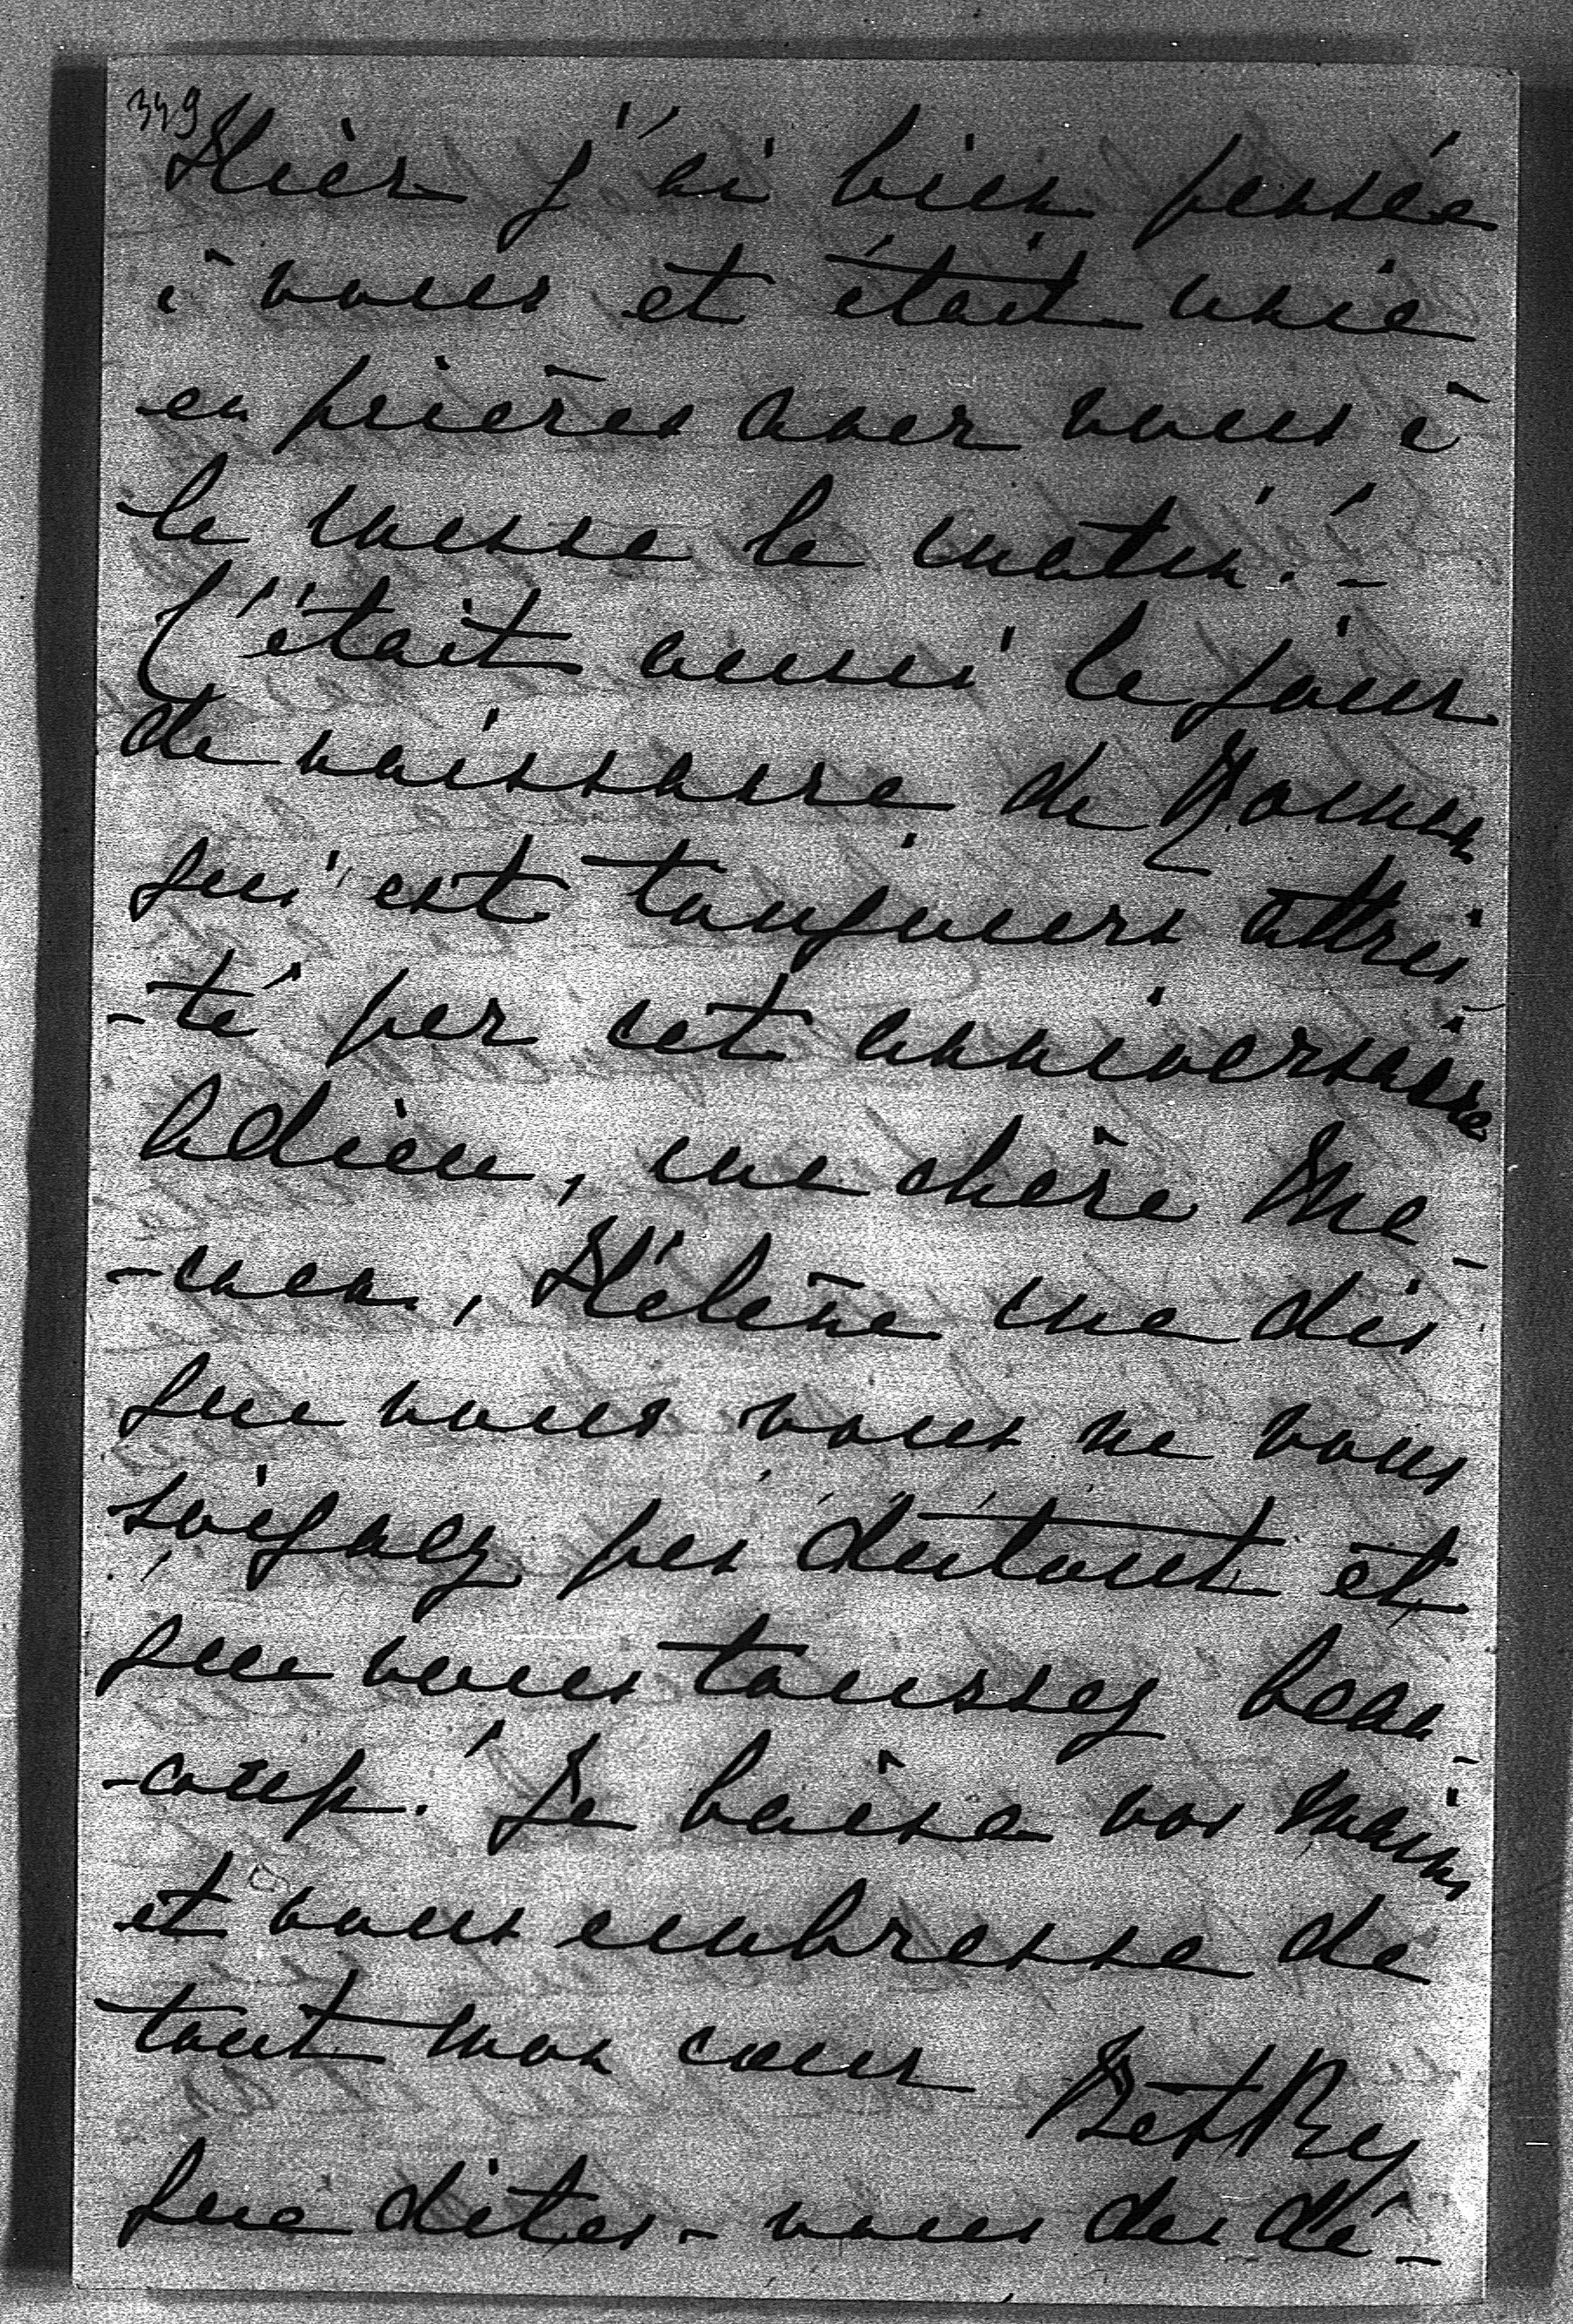 349
Hier j'ai bien pensée
à vous et était unie
en prières avec vous à
la messe le matin. -
C'était aussi le jour
de naissance de Roman
qui est toujours attris-
-té par cet anniversaire
Adieu, ma chère Ma-
-man, Hélène me dis
que vous vous ne vous
soignez pas dutout et
que vous toussez beau-
-coup. Je baise vos mains
et vous embrasse de
tout mon cœur Betky
Que dites-vous des dé-